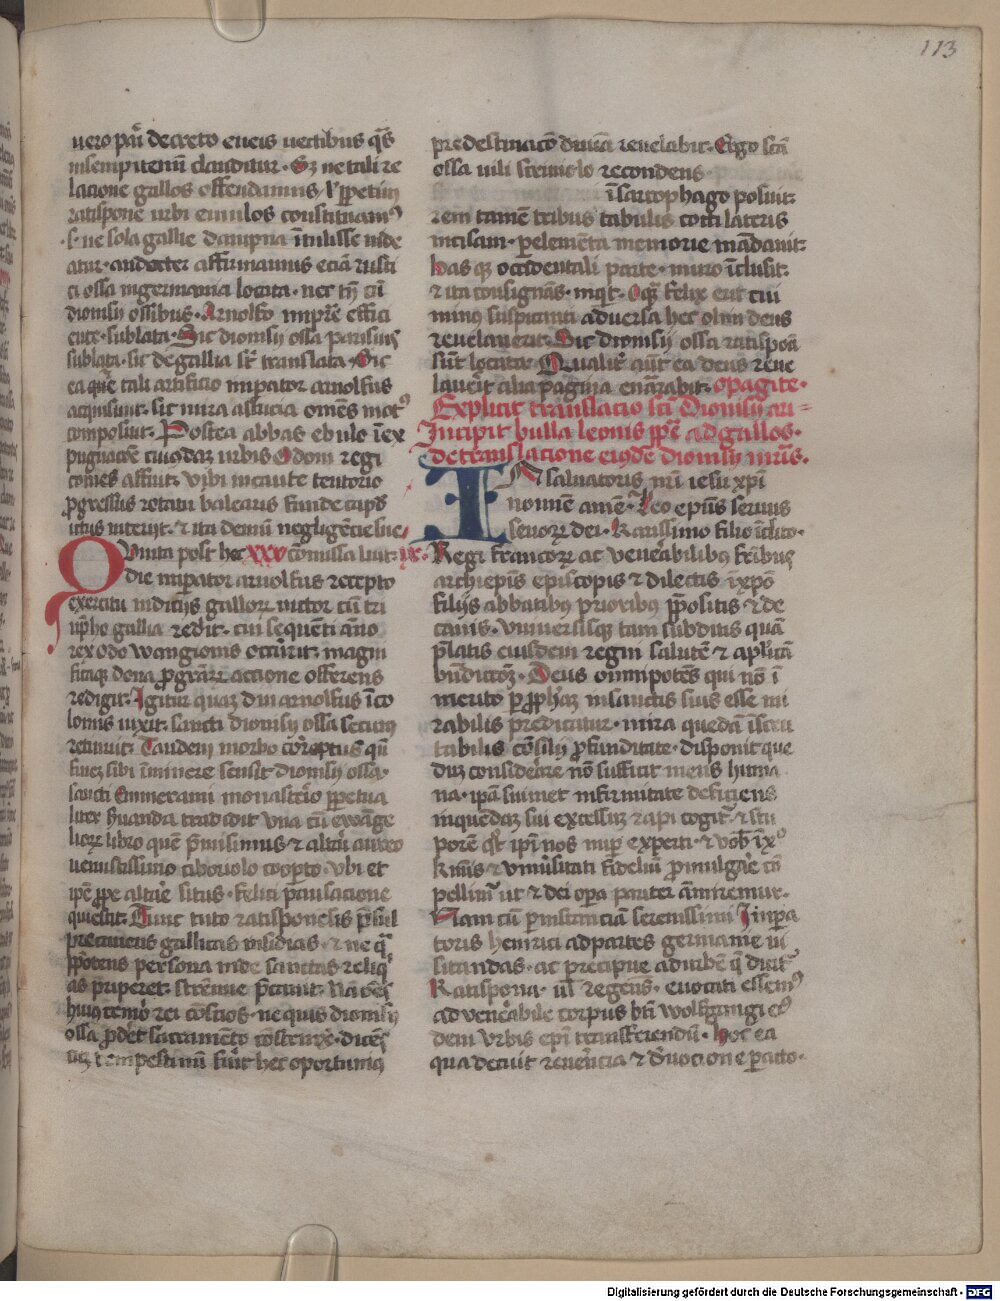 113
uero pari decreto eneis uectibus qs
insempiternū clauditur. Sz ne tali re
lacione gallos offendamus ł ꝑpetim
ratispone urbi emulos constituamꝰ
.s. ne sola gallie dampna ītulisse uide
atur. andecter affirmamus eciā rusti
ci ossa ingermania locata. nec tn̄ cū
dionisij ossibus. Arnolfo impre effici
ente. sublata. Sic dionisij ossa parisius
sublata. sic degallia sūt translata. Sic
ea que tali artificio impator arnolfus
acquisiuit. sic mira astucia omēs motꝰ
composiuit. Postea abbas ebulo īex
pugnacōe ciuodaz urbis Odoni regi
comes affuit. Vrbi incaute tentorio
ꝓgressus rotatu balearis funde capd
ictus interijt. ⁊ ita demū negligēcie sue
Quinta post hec xxx cōmissa luit. ix.
die imperator arnolfus recepto
exercitu indicijs galloꝝ uictor cū tri
upho gallia redijt. cui sequēti āno
rex odo wangionis occurrit. magni
ficaꝫ dona ꝓ grarꝝ actione offerens
redigit. Igitur quaz diu arnolfus īco
lomis uixit. sancti dionisij ossa secum
retinuit. Tandem morbo correptus qn̄
finez sibi īminere sensit dionisij ossa.
sancti Emmerami monasterio ꝑpetua
liter seruanda tradidit vna cū ewange
liorꝝ libro quē p̄misimus ⁊ altari aureo
uenustissimo ciboriolo coopto. vbi et
ipē ꝓpe altare situs. felici pausacione
quiescit. Tunc tuto ratisponensis presul
precauens gallicas insidias. ⁊ ne q̄
ꝑpotens persona inde sanctas reliq
as ꝑriperet. strenue p̄cauit. Nā om̄s
huiꝰ temōr rei cōscios. ne quis dionisij
ossa ꝓderet sacramēto cōstrinxit. dicēs
ad tempestiuū fiat hec oportunius
predestinacō diuīa reuelabit. Ergo scī
ossa uili scriniolo recondens
ī sarcophago posuit.
rem tamē tribus tabulis cocti lateris
incisam. ꝑelementa memorie mādauit.
has qꝫ occidentali parte. muro īclusit.
⁊ ita consignās. inqt. Oqm̄ felix erit cui
minꝰ suspicanti aduersa hec olim deus
reuelauerit. Sic dionisij ossa ratispona
sūt locata. Qualiꝰ aut̄ ea deus reue
lauerit alia pagina enārabit. opagite.
Explicit translacio scī Dionisij ari
Incipit bulla leonis ꝑpe ad gallos.
de translacione eiusdē dionisij mr̄is.
IN saluatoris nr̄i iesu xp̄i
nomē amē. Leo ep̄us seruus
seruorꝝ dei. Karissimo filio īclito.
Regi francorꝝ ac venerabilibus fratribus
archiep̄is episcopis ⁊ dilectis ī xp̄o
filijs abbatibꝰ prioribus ꝑpositis ⁊ de
canis. vniuersisqꝫ tam subditis quā
p̄latis eiusdem regni salutē ⁊ aplicā
bn̄dictōꝫ. Deus omnipotēs qui nō ī
merito ꝑ ꝓphaꝫ insanctis suis esse mi
rabilis predicatur. mira quedā īscru
tabilis cōsilij ꝓfunditate. disponit que
duꝫ considerare nō sufficit mens huma
na. ipā suimet infirmitate deficiens
inquedaꝫ sui excessuꝫ rapi cogit̄. ⁊ stu
porē qd̄ ipī nos nup̄ experti. ⁊ vob̄ ī xº
kmīs ⁊ vniūsitati fidelium ꝓmulgare cō
pellimur ut ⁊ dei opa pariter āmiremur.
Nam cū ꝑinstanciā serenissimi Impa
toris heinrici ad partes germanie ui
sitandas. ac precipue ad urbē q̄ dicit
Ratispona. ul regens. euocati essemꝰ
ad venerabile corpus bti wolfgangi eꝰ
dem vrbis epī transferendū. hoc ea
qua decuit reuerēcia ⁊ deuocione pacto.
Digitalisierung gefördert durch die Deutsche Forschungsgemeinschaft - DFG